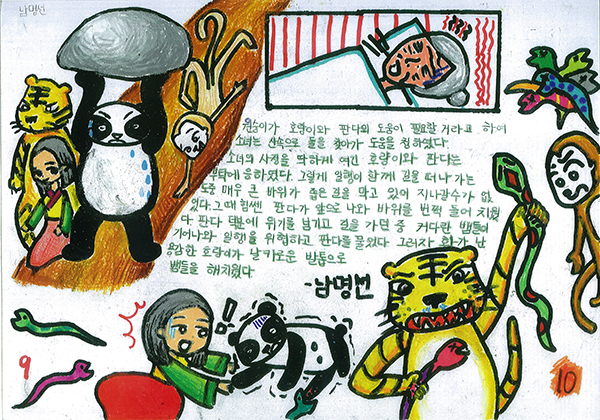 남명선
원숭이가 호랑이와 판다의 도움이 필요할 거라고 하여
소녀는 산속으로 둘을 찾아가 도움을 청하였다.
소녀의 사정을 딱하게 여긴 호랑이와 판다는
부탁에 응하였다. 그렇게 일행이 함께 길을 떠나 가는
도중 매우 큰 바위가 좁은 길을 막고 있어 지나갈수가 없
었다. 그때 힘쎈 판다가 앞으로 나와 바위를 번쩍 들어 치웠
다. 판다 덕분에 위기를 넘기고 길을 가던 중 커다란 뱀들이
기어나와 일행을 위협하고 판다를 물었다. 그러자 화가 난
용감한 호랑이가 날카로운 발톱으로
뱀들을 해치웠다
-남명선
!
9
10